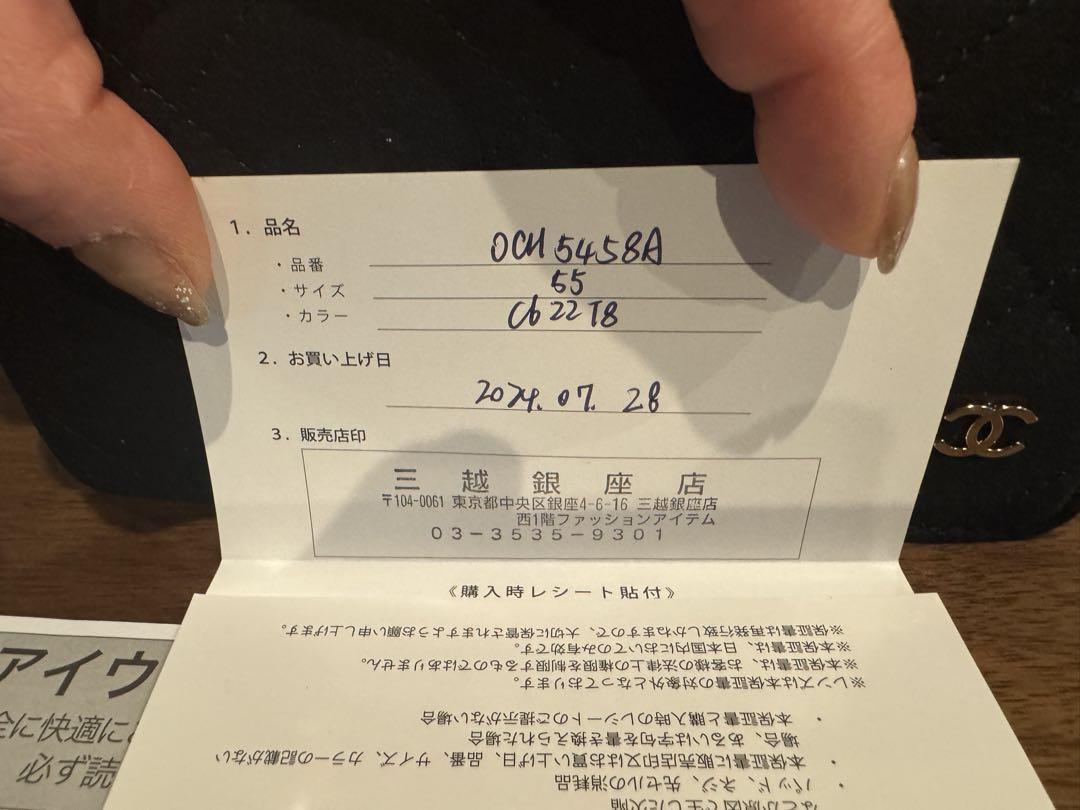 1. 品名
・品番 OCH 5458A
・サイズ 55
・カラー C622T8
2. お買い上げ日
2024. 07. 28
3. 販売店印
三越銀座店
〒104-0061 東京都中央区銀座4-6-16 三越銀座店
西1階ファッションアイテム
03-3535-9301
《購入時レシート貼付》
※保証書は再発行致しかねますので、大切に保管されますようお願い申し上げます。
※本保証書は、日本国内においてのみ有効です。
※本保証書は、お客様の法律上の権限を制限するものではありません。
※レンズは本保証書の対象外となっております。
・ 本保証書と購入時のレシートのご提示がない場合
場合、あるいは字句を書き換えられた場合
・ 本保証書に販売店印又はお買い上げ日、品番、サイズ、カラーの記載がない
・ パッド、ネジ、先セルの消耗品
アイウ
全に快適に
必ず読